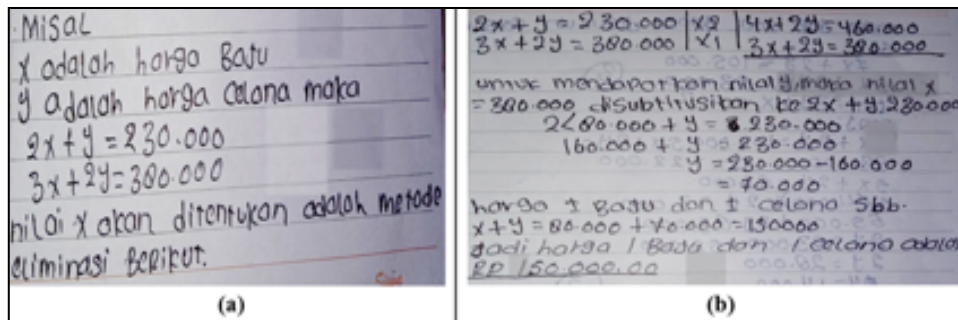 Misal
x adalah harga Baju
y adalah harga celana maka
2x + y = 230.000
3x + 2y = 380.000
nilai x akan ditentukan adalah metode
eliminasi Berikut.
(a)
2x + y = 230.000 | x2 | 4x + 2y = 460.000
3x + 2y = 380.000 | x1 | 3x + 2y = 380.000
untuk mendapatkan nilai y, maka nilai x
= 380.000 disubtitusikan ke 2x + y = 230.000
2(80.000 + y = 230.000
160.000 + y = 230.000
y = 230.000 - 160.000
= 70.000
harga 1 Baju dan 1 celana sbb.
x + y = 80.000 + 70.000 = 150000
Jadi harga 1 Baju dan 1 celana adalah
RP 150.000.00
(b)